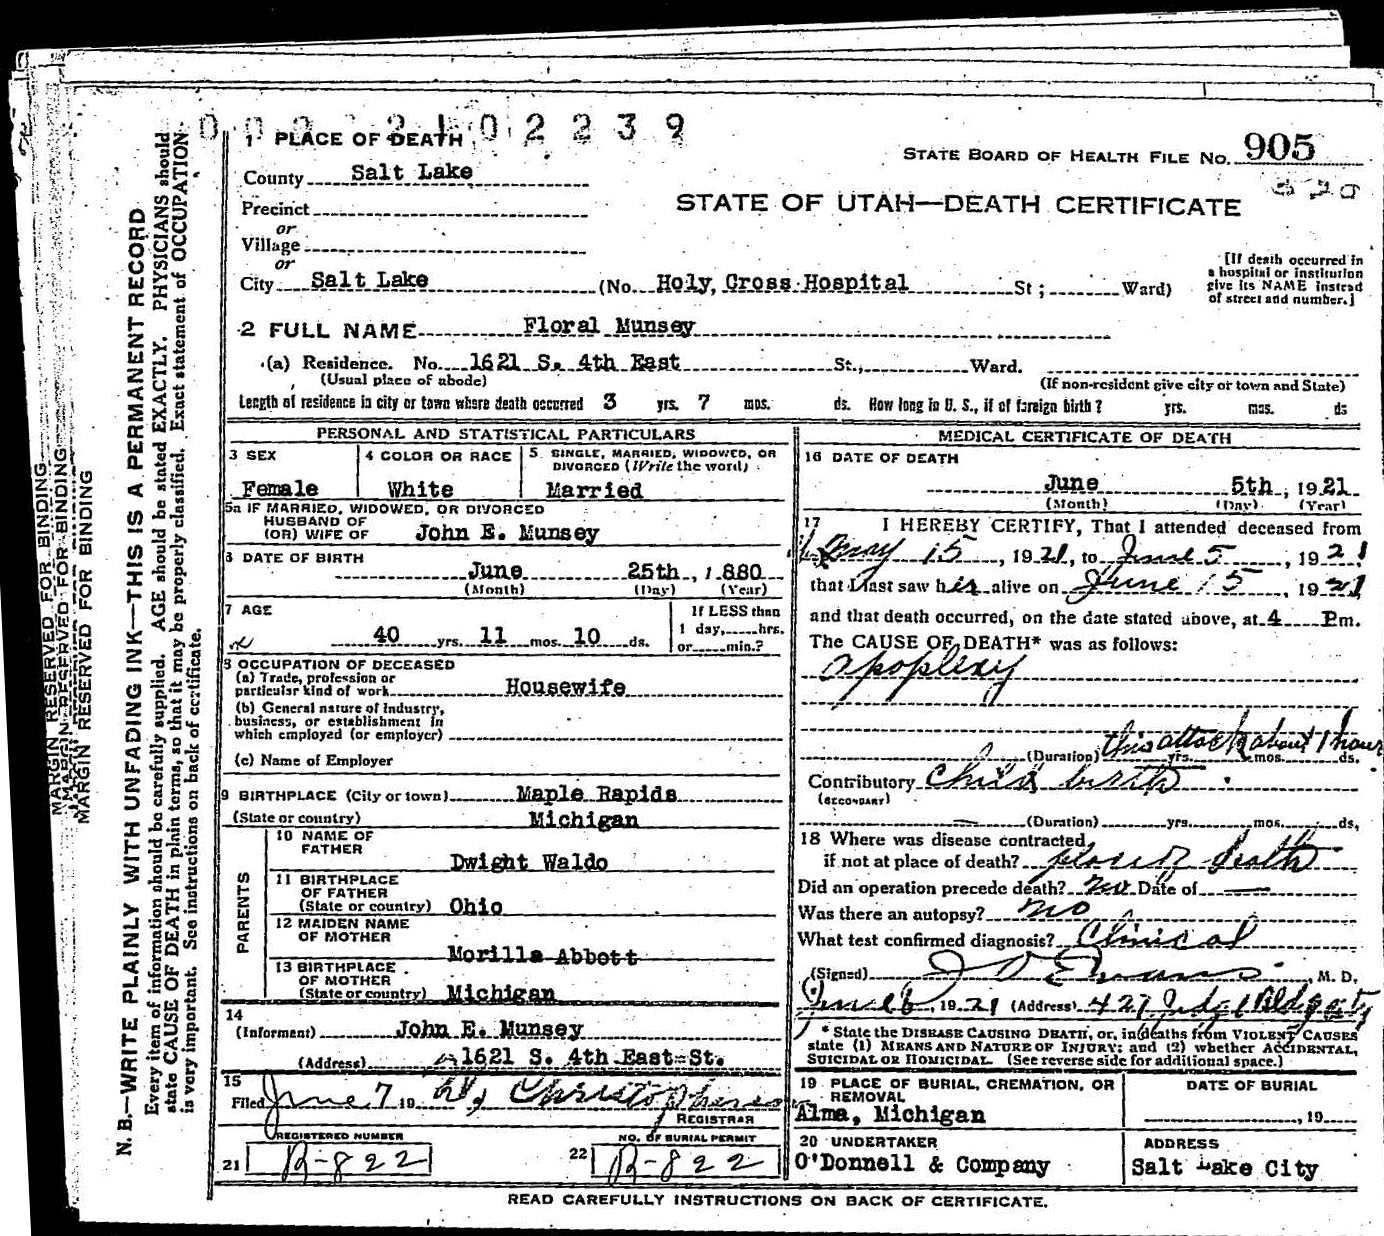 MARGIN RESERVED FOR BINDING
MARGIN RESERVED FOR BINDING
MARGIN RESERVED FOR BINDING
N. B.—WRITE PLAINLY WITH UNFADING INK—THIS IS A PERMANENT RECORD
Every item of information should be carefully supplied. AGE should be stated EXACTLY. PHYSICIANS should
state CAUSE OF DEATH in plain terms, so that it may be properly classified. Exact statement of OCCUPATION
is very important. See instructions on back of certificate.
2102239
1 PLACE OF DEATH
STATE BOARD OF HEALTH FILE NO. 905
County Salt Lake
STATE OF UTAH—DEATH CERTIFICATE
Precinct
or
Village
or
City Salt Lake (No. Holy Cross Hospital St; Ward)
[If death occurred in
a hospital or institution
give its NAME instead
of street and number.]
2 FULL NAME Floral Munsey
(a) Residence. No. 1621 S. 4th East St., Ward.
(Usual place of abode) (If non-resident give city or town and State)
Length of residence in city or town where death occurred 3 yrs. 7 mos. ds. How long in U. S., if of foreign birth? yrs. mos. ds
PERSONAL AND STATISTICAL PARTICULARS
3 SEX
Female
4 COLOR OR RACE
White
5 SINGLE, MARRIED, WIDOWED, OR
DIVORCED (Write the word)
Married
5a IF MARRIED, WIDOWED, OR DIVORCED
HUSBAND OF
(OR) WIFE OF John E. Munsey
6 DATE OF BIRTH
June 25th, 1880
(Month) (Day) (Year)
7 AGE
40 yrs. 11 mos. 10 ds.
If LESS than
1 day, hrs.
or min.?
8 OCCUPATION OF DECEASED
(a) Trade, profession or
particular kind of work Housewife
(b) General nature of Industry,
business, or establishment in
which employed (or employer)
(c) Name of Employer
9 BIRTHPLACE (City or town) Maple Rapids
(State or country) Michigan
PARENTS
10 NAME OF
FATHER
Dwight Waldo
11 BIRTHPLACE
OF FATHER
(State or country) Ohio
12 MAIDEN NAME
OF MOTHER
Morilla Abbott
13 BIRTHPLACE
OF MOTHER
(State or country) Michigan
14
(Informent) John E. Munsey
(Address) 1621 S. 4th East St.
15
Filed June 7 19
REGISTRAR
REGISTERED NUMBER
21 R-822
NO. OF BURIAL PERMIT
22 R-822
MEDICAL CERTIFICATE OF DEATH
16 DATE OF DEATH
June 5th, 1921
(Month) (Day) (Year)
17 I HEREBY CERTIFY, That I attended deceased from
May 15, 1921, to June 5, 1921
that I last saw her alive on June 5, 1921
and that death occurred, on the date stated above, at 4 P.m.
The CAUSE OF DEATH* was as follows:
apoplexy
(Duration) this attack about 1 hour yrs. mos. ds.
Contributory Child birth
(SECONDARY)
(Duration) yrs. mos. ds,
18 Where was disease contracted
if not at place of death? place of death
Did an operation precede death? no Date of —
Was there an autopsy? no
What test confirmed diagnosis? Clinical
(Signed) M. D.
June 6, 1921 (Address) 427 Judge Bldg city
* State the DISEASE CAUSING DEATH, or, in deaths from VIOLENT CAUSES
state (1) MEANS AND NATURE OF INJURY; and (2) whether ACCIDENTAL,
SUICIDAL OR HOMICIDAL. (See reverse side for additional space.)
19 PLACE OF BURIAL, CREMATION, OR
REMOVAL
Alma, Michigan
DATE OF BURIAL
, 19
20 UNDERTAKER
O'Donnell & Company
ADDRESS
Salt Lake City
READ CAREFULLY INSTRUCTIONS ON BACK OF CERTIFICATE.